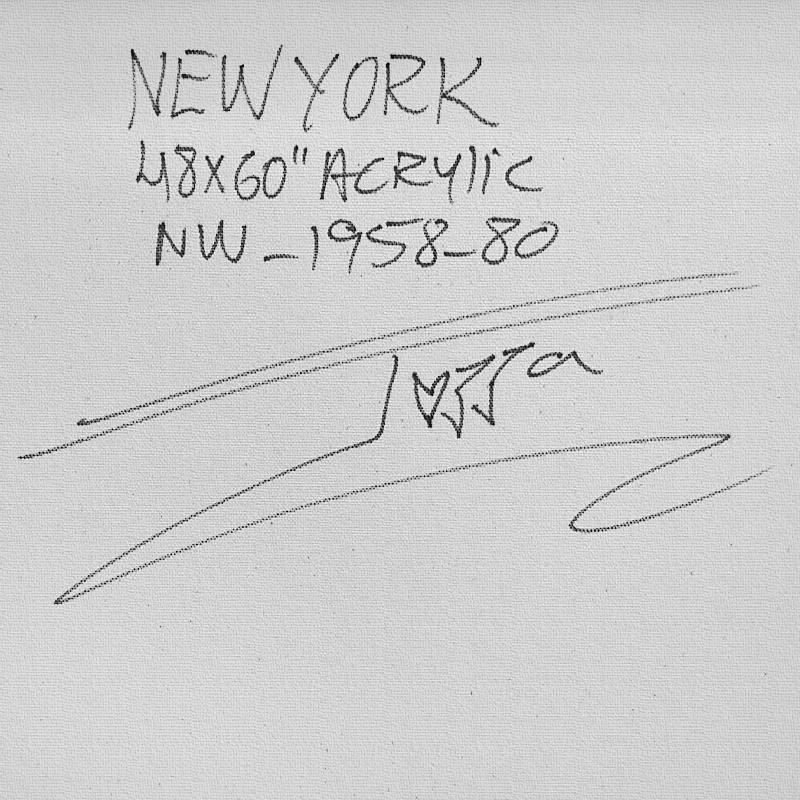 NEW YORK
48X60" ACRYlic
NW_1958_80